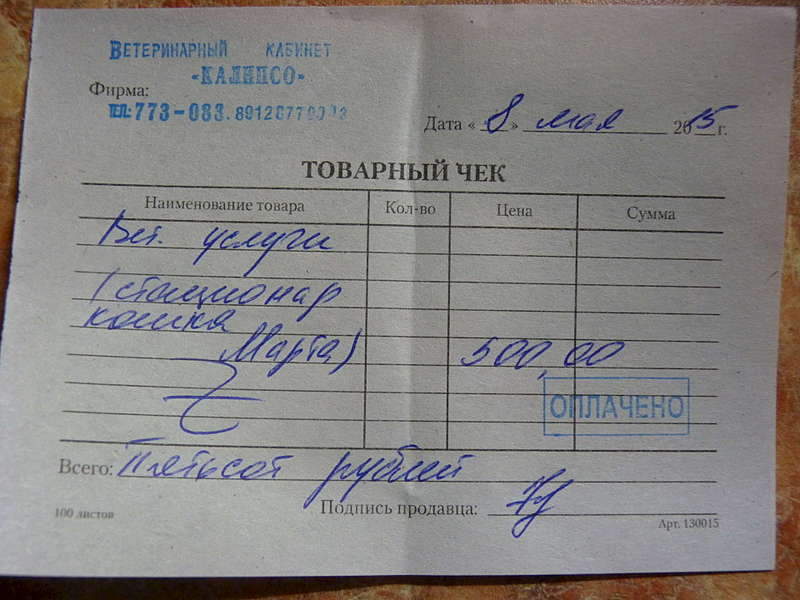 ВЕТЕРИНАРНЫЙ КАБИНЕТ
«КАЛИПСО»
Фирма:
ТЕЛ: 773-083.
Дата «8» мая 2015 г.
ТОВАРНЫЙ ЧЕК
Наименование товара Кол-во Цена Сумма
Вет. услуги
(стационар
кошка
Марта) 500,00
ОПЛАЧЕНО
Всего: Пятьсот рублей
Подпись продавца:
100 листов
Арт. 130015